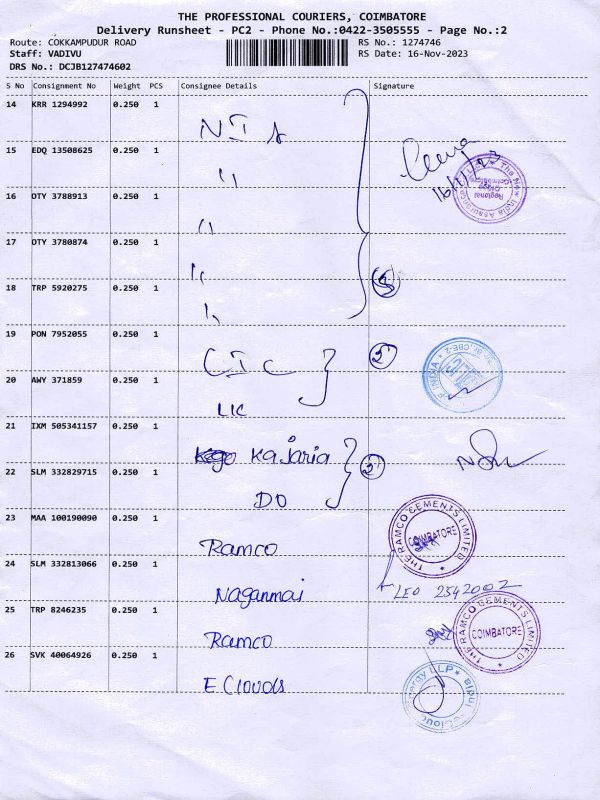 THE PROFESSIONAL COURIERS, COIMBATORE
Delivery Runsheet - PC2 - Phone No.:0422-3505555 - Page No.:2
Route: COKKAMPUDUR ROAD
RS No.: 1274746
Staff: VADIVU
RS Date: 16-Nov-2023
DRS No.: DCJB127474602
S No Consignment No Weight PCS Consignee Details Signature
14 KRR 1294992 0.250 1
NIA
16/11/23
The New India Assurance
Regional Office
Coimbatore
15 EDQ 13508625 0.250 1
"
16 OTY 3788913 0.250 1
"
17 OTY 3780874 0.250 1
"
18 TRP 5920275 0.250 1
"
5
19 PON 7952055 0.250 1
LIC
2
20 AWY 371859 0.250 1
LIC
21 IXM 505341157 0.250 1
Kajaria
2
22 SLM 332829715 0.250 1
DO
23 MAA 100190090 0.250 1
Ramco
THE RAMCO CEMENTS LIMITED
COIMBATORE
24 SLM 332813066 0.250 1
Naganmai
LEO 2542002
25 TRP 8246235 0.250 1
Ramco
THE RAMCO CEMENTS LIMITED
COIMBATORE
26 SVK 40064926 0.250 1
E Clouds